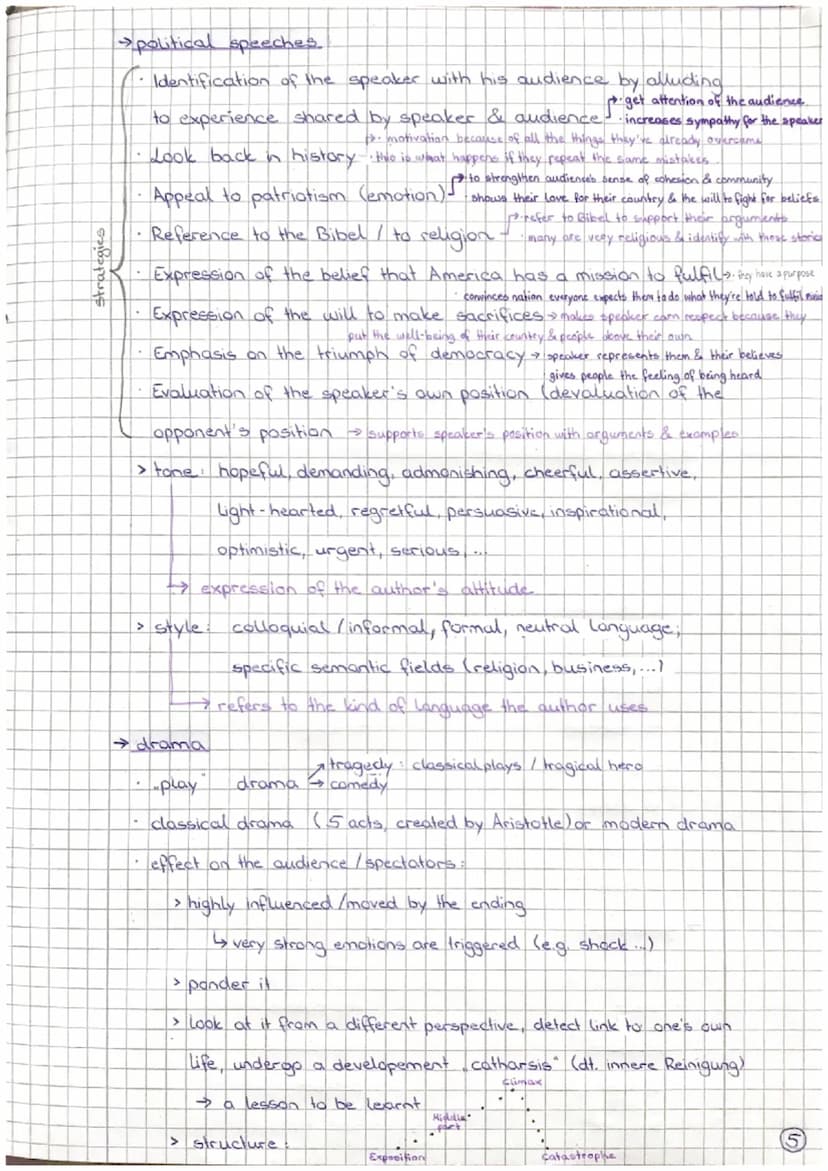 → political speeches
strategies
· Identification of the speaker with his audience by alluding
to experience shared by speaker & audience
→ · get attention of the audience
· increases sympathy for the speaker
→ · motivation because of all the things they've already overcame
· Look back in history · this is what happens if they repeat the same mistakes
→ to strengthen audience's sense of cohesion & community
· Appeal to patriotism (emotion) · shows their love for their country & the will to fight for beliefs
→ · refer to Bibel to support their arguments
· Reference to the Bibel / to religion · many are very religious & identify with these stories
· Expression of the belief that America has a mission to fulfil → · they have a purpose
· convinces nation everyone expects them to do what they're told to fulfil
· Expression of the will to make sacrifices → makes speaker earn respect because they
put the well-being of their country & people above their own
· Emphasis on the triumph of democracy → · speaker represents them & their believes
· gives people the feeling of being heard
· Evaluation of the speaker's own position (devaluation of the
opponent's position → supports speaker's position with arguments & examples
> tone: hopeful, demanding, admonishing, cheerful, assertive,
light-hearted, regretful, persuasive, inspirational,
optimistic, urgent, serious, ...
↳ expression of the author's attitude
> style: colloquial / informal, formal, neutral language;
specific semantic fields (religion, business, ...)
↳ refers to the kind of language the author uses
→ drama
↗ tragedy: classical plays / tragical hero
· „play" drama → comedy
· classical drama (5 acts, created by Aristotle) or modern drama
· effect on the audience / spectators:
> highly influenced / moved by the ending
↳ very strong emotions are triggered (e.g. shock ...)
> ponder it
> look at it from a different perspective, detect link to one's own
life, undergo a developement „catharsis" (dt. innere Reinigung)
→ a lesson to be learnt
> structure:
Exposition
Middle part
Climax
Catastrophe
5